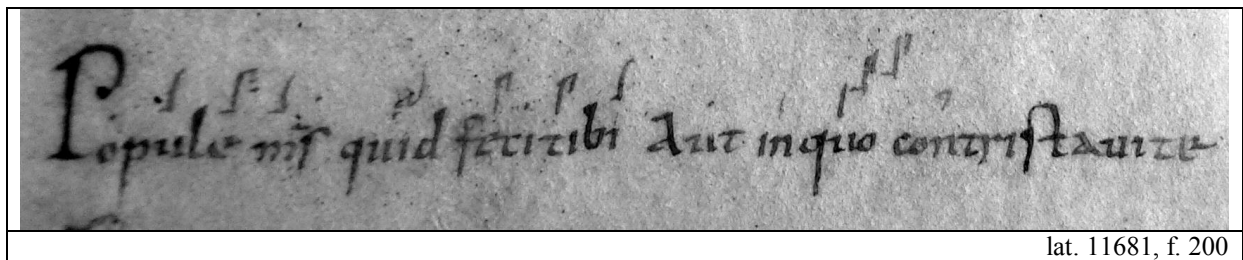 Popule m̅s quid feci tibi Aut in quo contristavi te
lat. 11681, f. 200